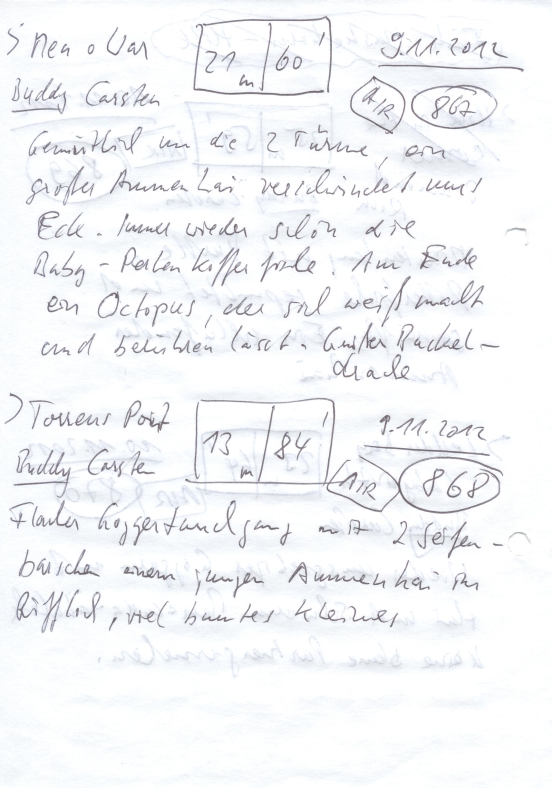 > Men o War 21 m 60' 9.11.2012
Buddy Carsten AIR 867
Gemütlich um die 2 Türme, ein
großer Ammenhai verschwindet ums
Eck. Immer wieder schön die
Baby-Perlen Kofferfische. Am Ende
ein Octopus, der sich weiß macht
und berühren lässt. Großer Buckel-
drache
> Torrens Point 13 m 84' 9.11.2012
Buddy Carsten AIR 868
Flacher mit 2 Seifen-
barschen einem jungen Ammenhai im
Riffloch, viel buntes Kleines